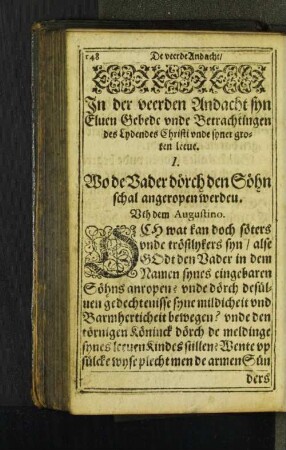 148 De veerde Andacht/
In der veerden Andacht syn
Elven Gebede vnde Betrachtingen
des Lydendes Christi vnde syner gro-
ten leeue.
1.
Wo de Vader dörch den Söhn
schal angeropen werden.
Vth dem Augustino.
OCH wat kan doch söters
vnde tröstlykers syn / alse
GOdt den Vader in dem
Namen synes eingebaren
Söhns anropen? vnde dörch desül-
uen gedechtenisse syne mildicheit vnd
Barmherticheit bewegen? vnde den
törnigen Köninck dörch de meldinge
synes leeuen Kindes stillen? Wente vp
sülcke wyse plecht men de armen Sün
ders